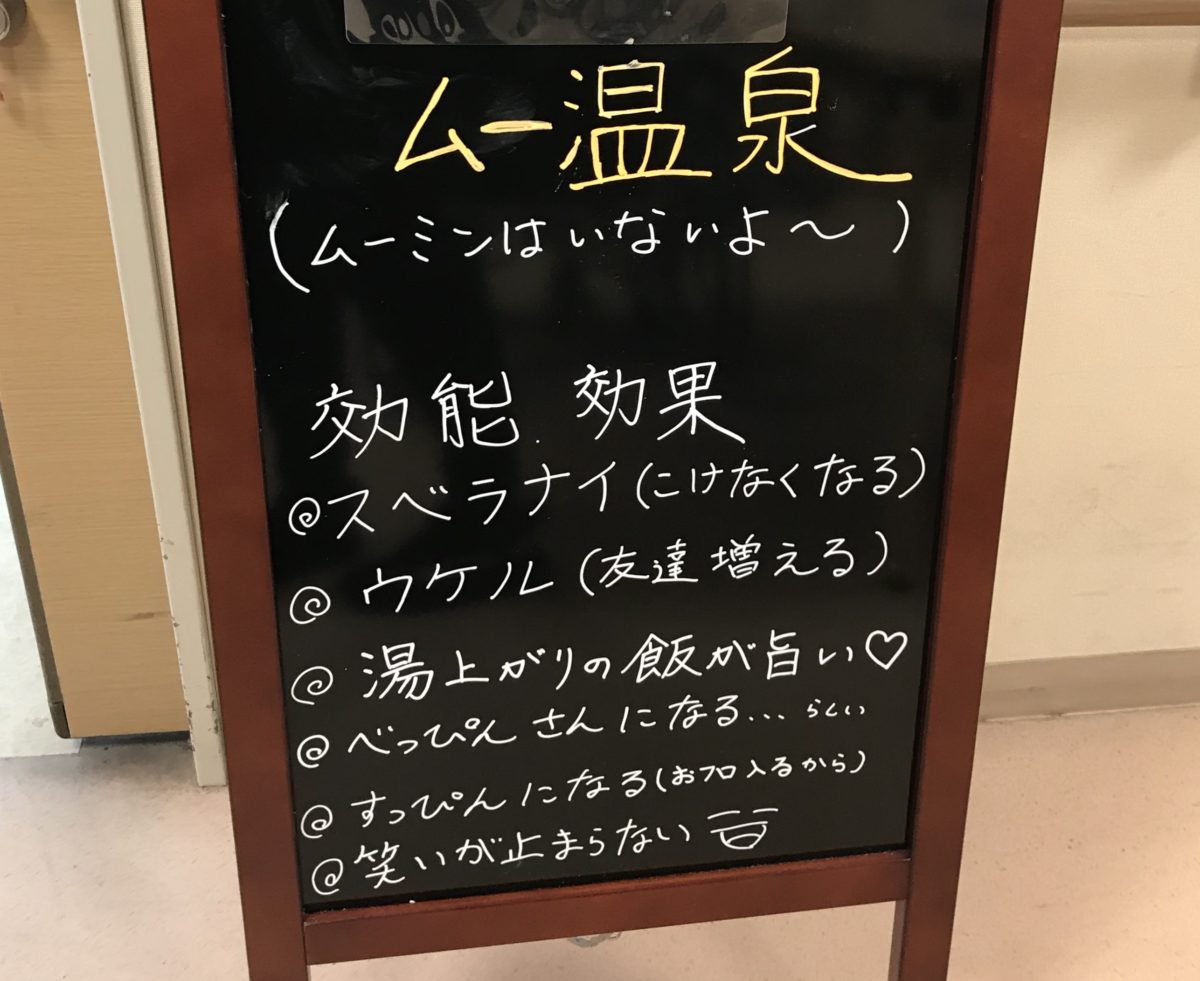 ムー温泉
(ムーミンはいないよ〜)
効能 効果
@スベラナイ(こけなくなる)
@ウケル(友達増える)
@湯上がりの飯が旨い♡
@べっぴんさんになる...らしい
@すっぴんになる(おフロ入るから)
@笑いが止まらない